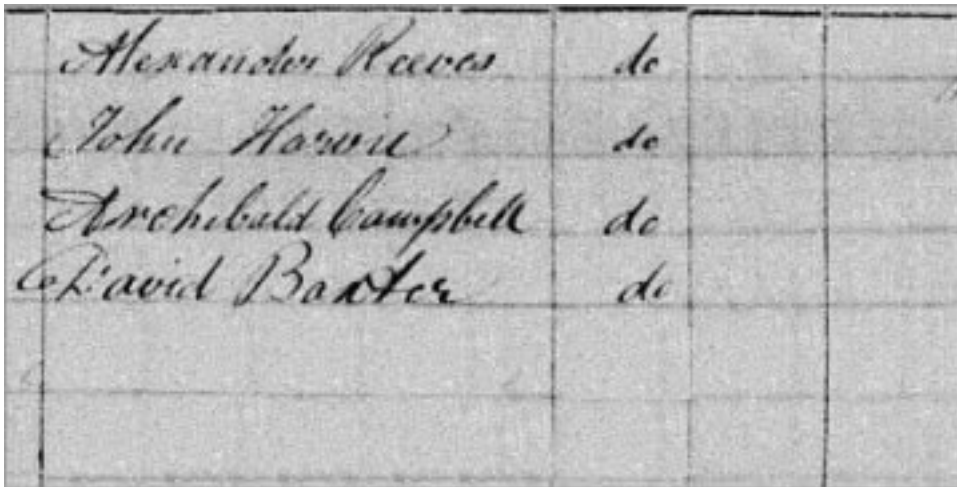 Alexander Reeves do
John Harvie do
Archibald Campbell do
David Baxter do